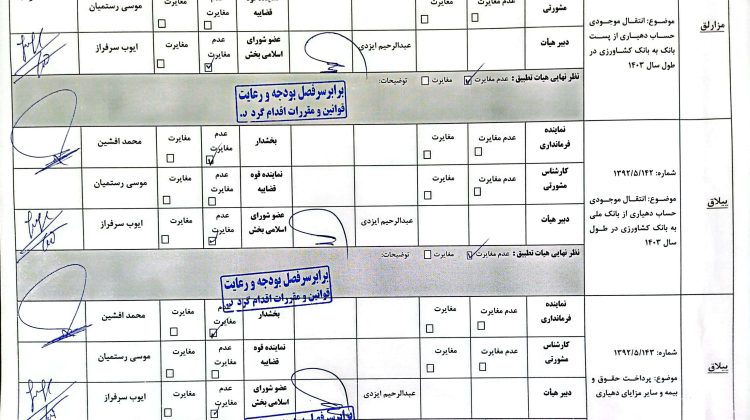 مزارلق
موضوع: انتقال موجودی
حساب دهیاری از پست
بانک به بانک کشاورزی در
طول سال ۱۴۰۳
مشورتی
عدم مغایرت
مغایرت
قضاییه
مغایرت
مغایرت
موسی رستمیان
دبیر هیأت
عبدالرحیم ایزدی
عضو شورای
اسلامی بخش
عدم
مغایرت
مغایرت
ایوب سرفراز
نظر نهایی هیات تطبیق: عدم مغایرت مغایرت توضیحات:
برابر سرفصل بودجه و رعایت
قوانین و مقررات اقدام گرد د..
ییلاق
شماره: ۱۳۹۲/۵/۱۴۲
موضوع: انتقال موجودی
حساب دهیاری از بانک ملی
به بانک کشاورزی در طول
سال ۱۴۰۳
نماینده
فرمانداری
عدم مغایرت
مغایرت
بخشدار
عدم
مغایرت
مغایرت
محمد افشین
کارشناس
مشورتی
عدم مغایرت
مغایرت
نماینده قوه
قضاییه
عدم
مغایرت
مغایرت
موسی رستمیان
دبیر هیأت
عبدالرحیم ایزدی
عضو شورای
اسلامی بخش
عدم
مغایرت
مغایرت
ایوب سرفراز
نظر نهایی هیات تطبیق: عدم مغایرت مغایرت توضیحات:
برابر سرفصل بودجه و رعایت
قوانین و مقررات اقدام گرد د..
ییلاق
شماره: ۱۳۹۲/۵/۱۴۳
موضوع: پرداخت حقوق و
بیمه و سایر مزایای دهیاری
نماینده
فرمانداری
عدم مغایرت
مغایرت
بخشدار
عدم
مغایرت
مغایرت
محمد افشین
کارشناس
مشورتی
عدم مغایرت
مغایرت
نماینده قوه
قضاییه
عدم
مغایرت
مغایرت
موسی رستمیان
دبیر هیأت
عبدالرحیم ایزدی
عضو شورای
اسلامی بخش
عدم
مغایرت
مغایرت
ایوب سرفراز
برابر سرفصل بودجه و رعایت